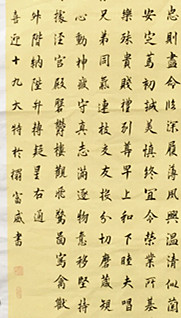 忠則盡命临深履薄夙興温凊似蘭
安定篤初誠美慎終宜令榮業所基
樂殊貴賤禮別尊卑上和下睦夫唱
兄弟同氣連枝交友投分切磨箴
心動神疲守真志滿逐物意移堅持
據涇宮殿盤鬱樓觀飛驚圖寫禽獸
升階納陛弁轉疑星右通
喜迎十九大特於富威書